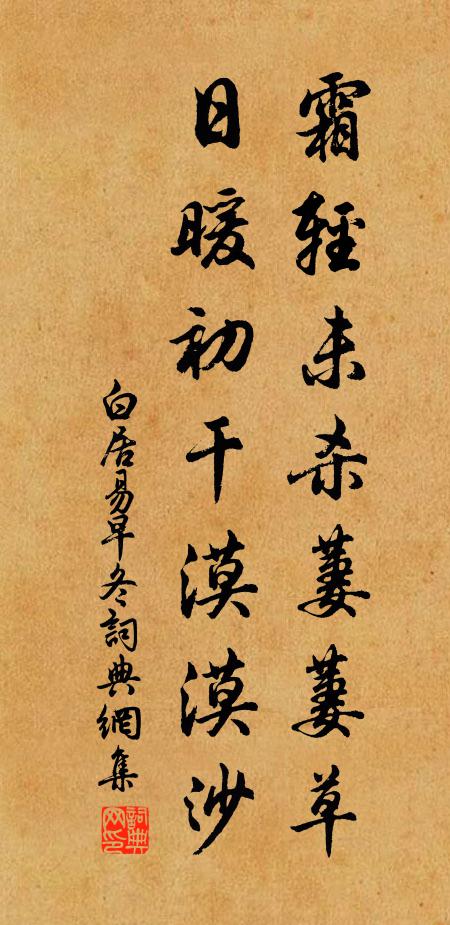 霜輕未杀萋萋草
日暖初干漠漠沙
白居易早冬詞典網集
詞典
网印